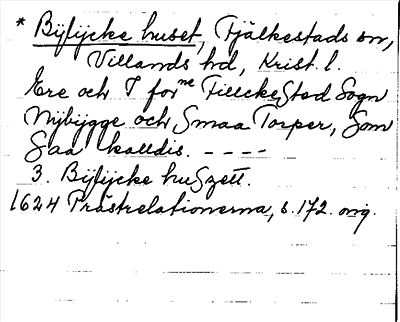 * Byflycke huset, Fjälkestads sn,
Villands hd, Krist. l.
Ere och J forne Fillckestad Sogn
Nybygge och Smaa Torper, Som
Saa kalldis. ----
3. Byflycke huszett.
1624 Prästrelationerna, s. 172. orig.